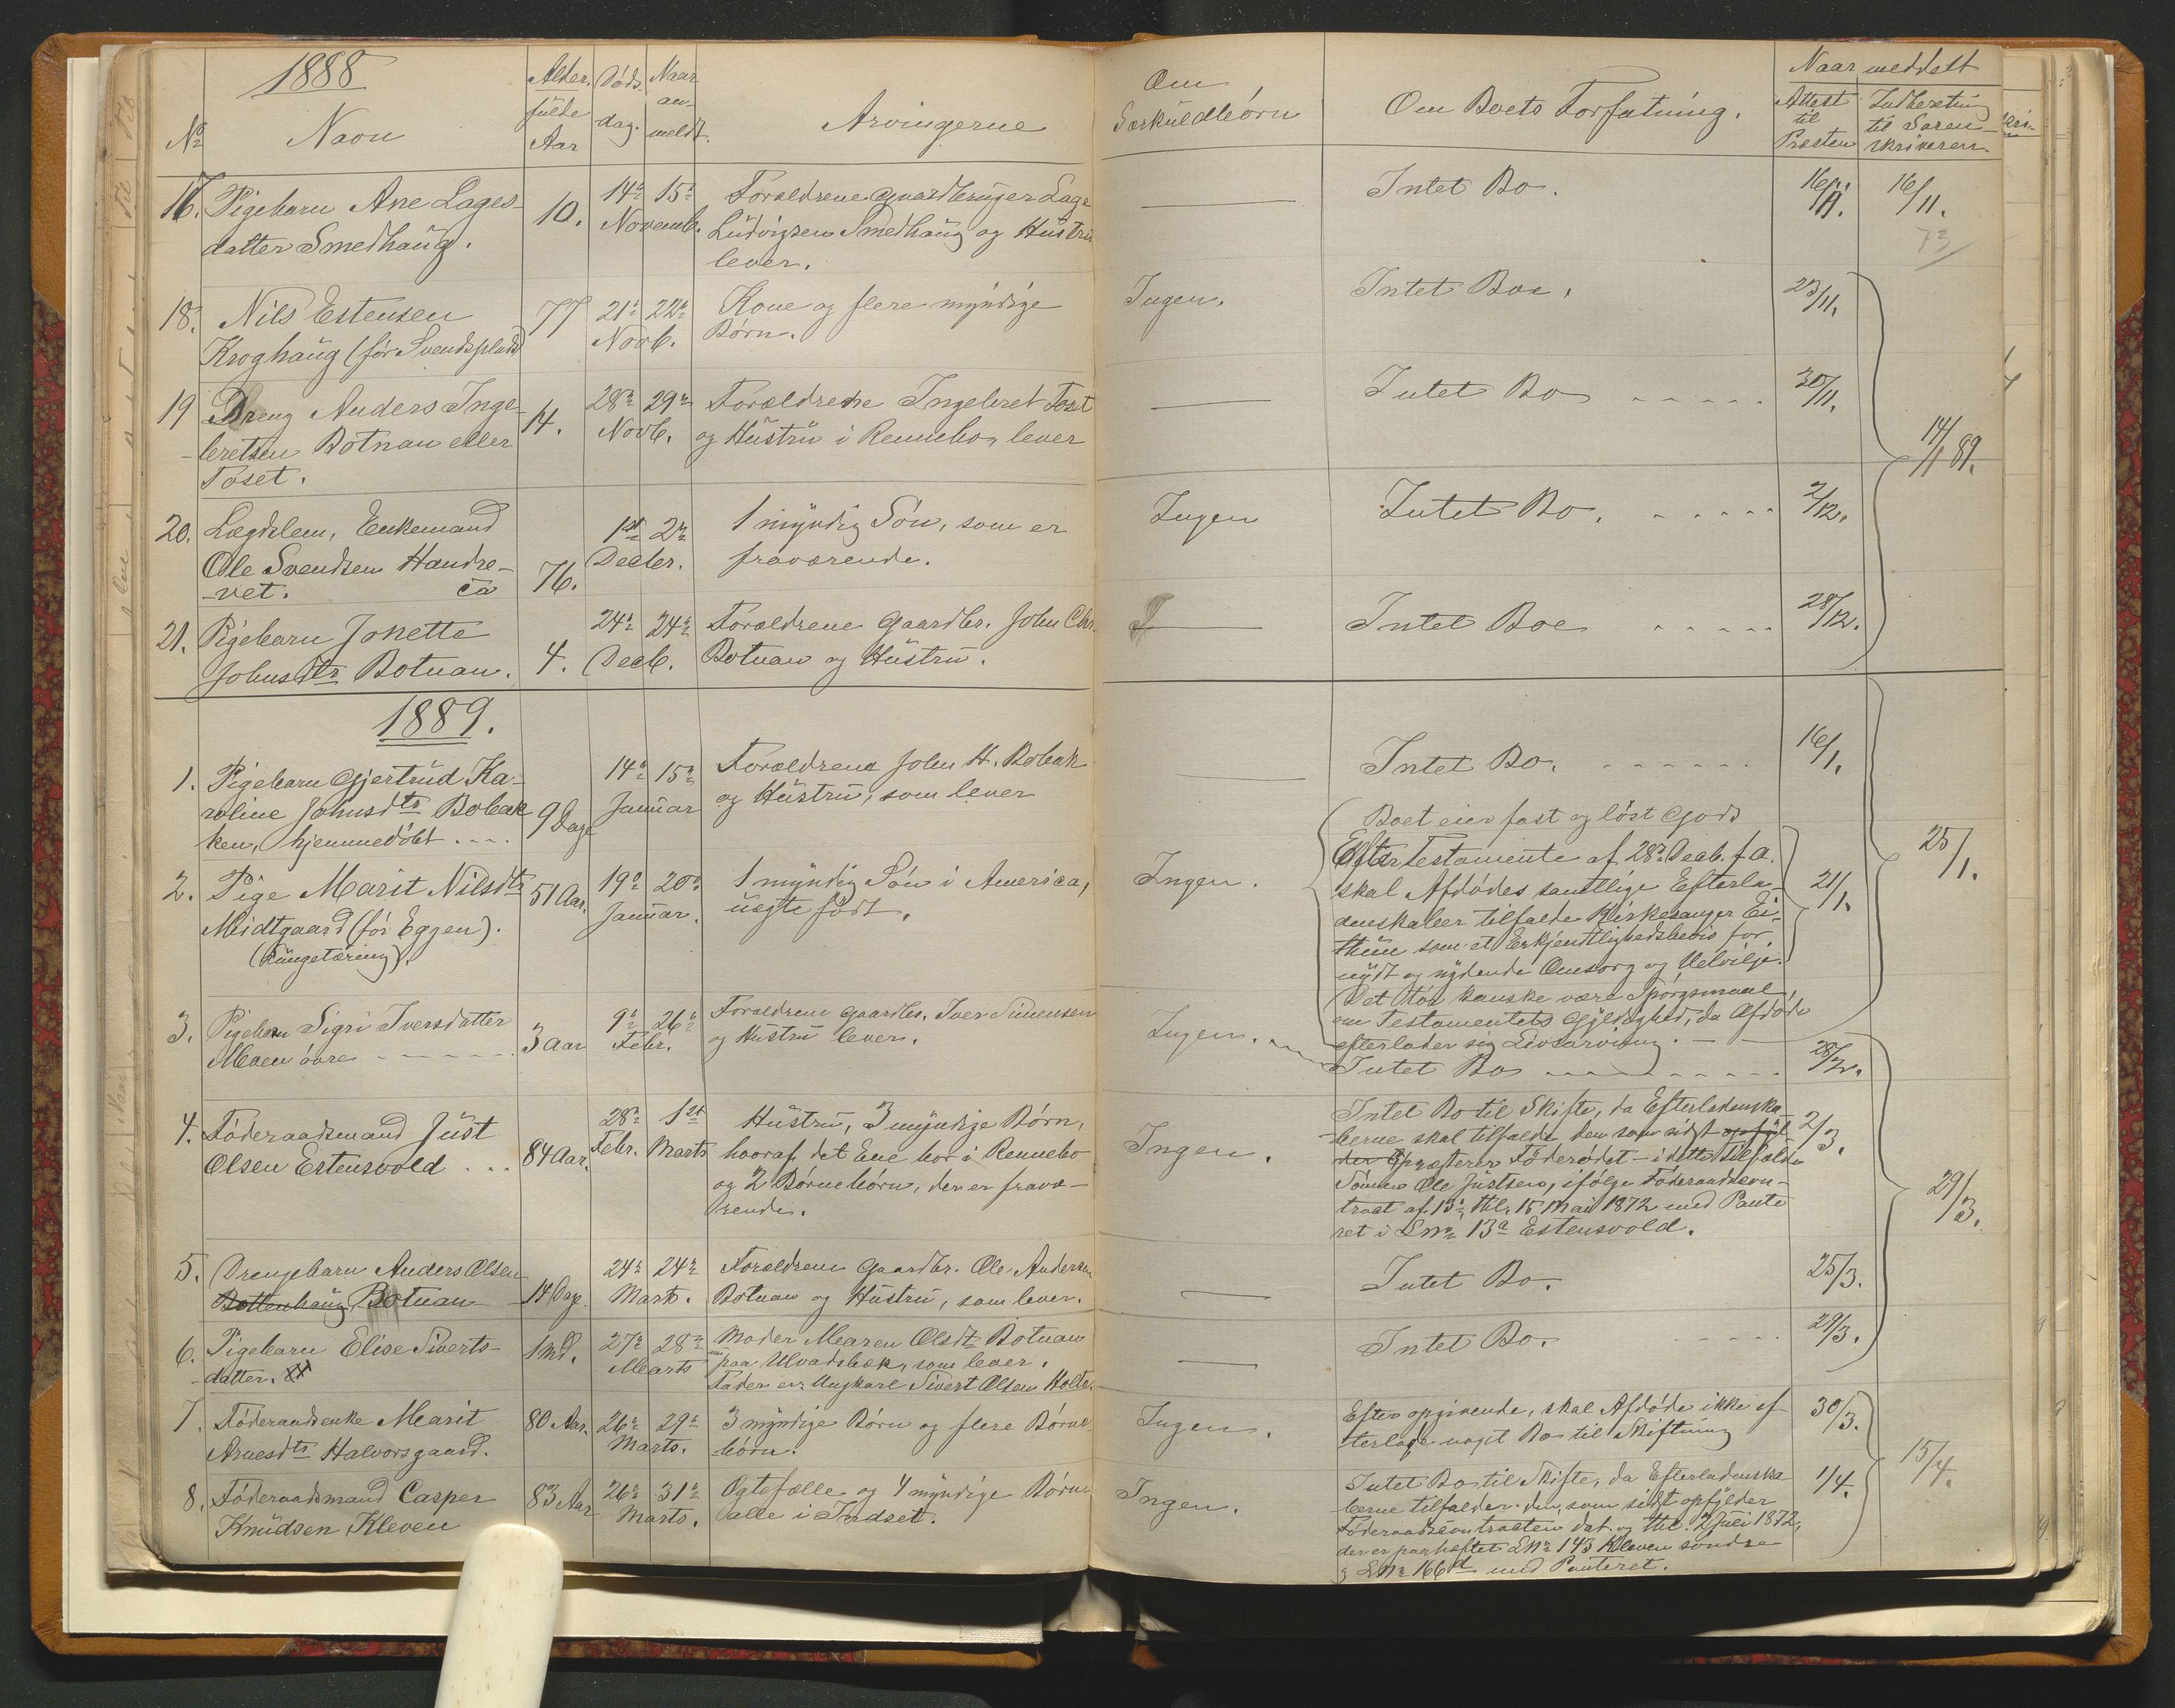 1888
No Navn
Alder. fülde Aar
Døds dag.
Naar anmeldt.
Arvingerne
Om Særküldbörn
Om Boets Forfatning.
Naar meddelt
Attest til Præsten
Indberetning til Soren skriveren.
17. Pigebarn Ane Lages-
datter Smedhaüg.
10.
14de 15de
Novemb.
Forældrene Gaardbrüger Lage
Lüdvigsen Smedhaüg og Hüstrü
lever.
Intet Bo.
16/11.
16/11.
73
18. Nils Estensen
Kroghaüg (før Svendsplads)
77
21de 22de
Novb.
Kone og flere myndige
Børn.
Ingen.
Intet Boe.
23/11.
19 Dreng Anders Inge-
-bretsen Botnan eller
Toset.
14.
28de 29de
Novb.
Forældrene Ingebret Toset
og Hüstrü i Rennebo, lever
Intet Bo
30/11.
14/1 89.
20. Lægdslem, Enkemand
Ole Svendsen Handre-
-vet. ca
76.
1ste 2den
Decbr.
1 myndig Søn, som er
fraværende.
Ingen
Intet Bo.
2/12.
21. Pigebarn Jonette
Johnsdtr Botnan.
4.
24de 24de
Decb.
Forældrene Gaardbr. John Chr.
Botnan og Hüstrü.
Intet Boe
28/12.
1889.
1. Pigebarn Gjertrüd Ka-
roline Johnsdtr Bobak
ken, hjemmedöbt
9 Dage
14de 15de
Januar
Forældrene John H. Bobak
og Hüstrü, som lever
Intet Bo.
16/1.
2. Pige Marit Nilsdtr
Midtgaard (før Eggen).
(Lüngetæring).
51 Aar.
19de 20de
Januar.
1 myndig Søn i America,
üægte født.
Ingen.
Boet eier fast og løst Gods
Efter Testamente af 28de Decb. f.a.
skal Afdødes samtlige Efterla-
denskaber tilfalde Kirkesanger Es-
thün som et Erkjendtlighedsbevis for
nydt og nydende Omsorg og Velvilje.
Det tør kanske være Spørgsmaal
om Testamentets Gyldighed, da Afdøde
efterlader sig Livsarving.
21/1.
25/1.
3. Pigebarn Sigri Iversdatter
Moen övre
3 Aar
9de 26de
Febr.
Forældrene Gaardbr. Iver Simensen
og Hüstrü lever.
Ingen.
Intet Bo
28/2.
4. Föderaadsmand Jüst
Olsen Estensvold
84 Aar.
28de 1ste
Febr. Marts
Hüstrü, 3 myndige Börn,
hvoraf det Ene bor i Rennebo
og 2 Börnebörn, der er fravæ-
rende.
Ingen.
Intet Bo til Skifte, da Efterladenska-
berne skal tilfalde den som sidst opfyl
der Præsterer Föderådet - i dette Tilfælde
Sönnen Ole Jüstsen, ifölge Föderaadscon-
tract af 13de thl. 15 Mai 1872 med Pante
ret i Lnr. 13a Estensvold.
2/3.
29/3.
5. Drengebarn Anders Olsen
Bottenhaüg Botnan
14 Dage.
24de 24de
Marts.
Forældrene Gaardbr. Ole Andersen
Botnan og Hüstrü, som lever.
Intet Bo.
25/3.
6. Pigebarn Elise Siverts-
-datter.
1 md.
27de 28de
Marts
Moder Maren Olsdtr Botnan
paa Ulvadsbæk, som lever.
Fader er: Ungkarl Sivert Olsen Holte
Intet Bo.
29/3.
7. Föderaadsenke Marit
Arnesdtr Halvorsgaard.
80 Aar.
26de 29de
Marts.
3 myndige Börn og flere Börne
börn.
Ingen.
Efter opgivende, skal Afdöde ikke ef
terlade noget Bo til Skiftning
30/3.
15/4.
8. Föderaadsmand Casper
Knüdsen Kleven
83 Aar
26de 31de
Marts.
Ægtefælle og 4 myndige Börn
alle i Indset.
Ingen.
Intet Bo til Skifte, da Efterladenska
berne tilfalder den, som sidst opfylder
Föderaadscontracten dat. og thl. 2 Juli 1872,
der er paaheftet Lnr. 143 Kleven söndre
og Lnr. 166d med Panteret.
1/4.